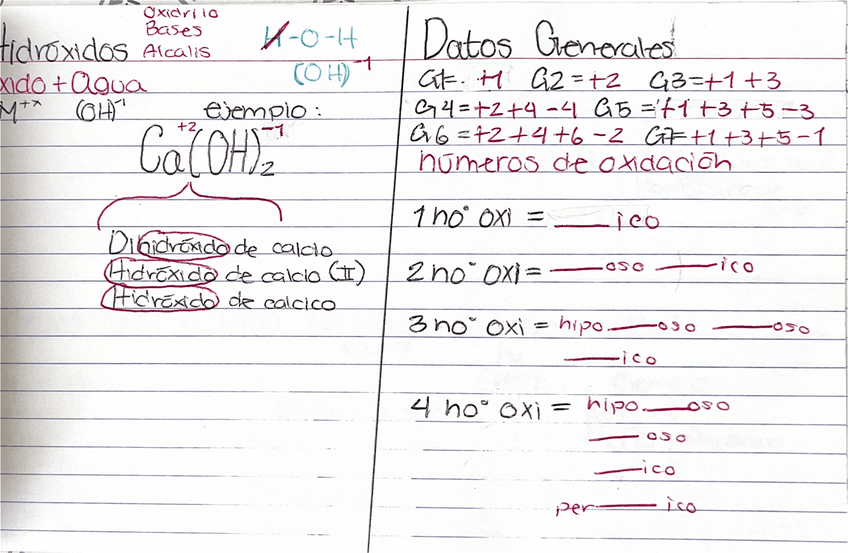 Hidróxidos
Oxidrilo
Bases
Alcalis
H-O-H
(OH)⁻¹
xido + Agua
M⁺ˣ (OH)⁻¹ ejemplo:
Ca⁺²(OH)₂⁻¹
Dihidróxido de calcio
Hidróxido de calcio (II)
Hidróxido de calcico
Datos Generales
G1= +1 G2=+2 G3=+1+3
G4=+2+4-4 G5=+1+3+5-3
G6=+2+4+6-2 G7=+1+3+5-1
números de oxidación
1 no° oxi = ___ico
2 no° oxi = ___oso ___ico
3 no° oxi = hipo___oso ___oso
___ico
4 no° oxi = hipo___oso
___oso
___ico
per___ico